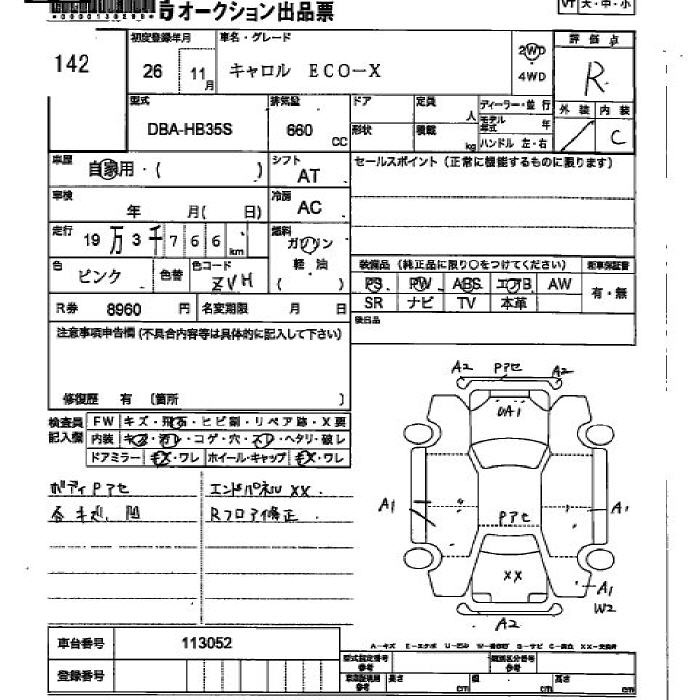 オークション出品票
VT 大・中・小
142
初度登録年月
26 11月
車名・グレード
キャロル ECO-X
2WD
4WD
評価点
R
型式
DBA-HB35S
排気量
660 CC
ドア
定員 人
ディーラー・並行
モデル年式 年
形状
積載 kg
ハンドル 左・右
外装 内装
C
車歴
自家用・( )
シフト
AT
セールスポイント (正常に機能するものに限ります)
車検
年 月( 日)
冷房
AC
走行
19万3千766km
燃料
ガソリン
軽・油
( )
色
ピンク
色替
色コード
ZVH
装備品 (純正品に限り○をつけてください)
新車保証書
PS PW ABS エアB AW
有・無
SR ナビ TV 本革
R券 8960 円
名変期限 月 日
後日品
注意事項申告欄 (不具合内容等は具体的に記入して下さい)
修復歴 有 〔箇所 〕
検査員記入欄
FW キズ・飛石・ヒビ割・リペア跡・X要
内装 キズ・汚レ・コゲ・穴・スレ・ヘタリ・破レ
ドアミラー キズ・ワレ ホイール・キャップ キズ・ワレ
ボディPアセ
各キズ、凹
エンドパネルXX.
Rフロア修正
A2 Pアセ A2
UA1
A1
Pアセ
A1
XX
A1
W2
A2
車台番号
113052
登録番号
型式指定番号 参考
類別区分番号 参考
長さ cm
幅 cm
高さ cm